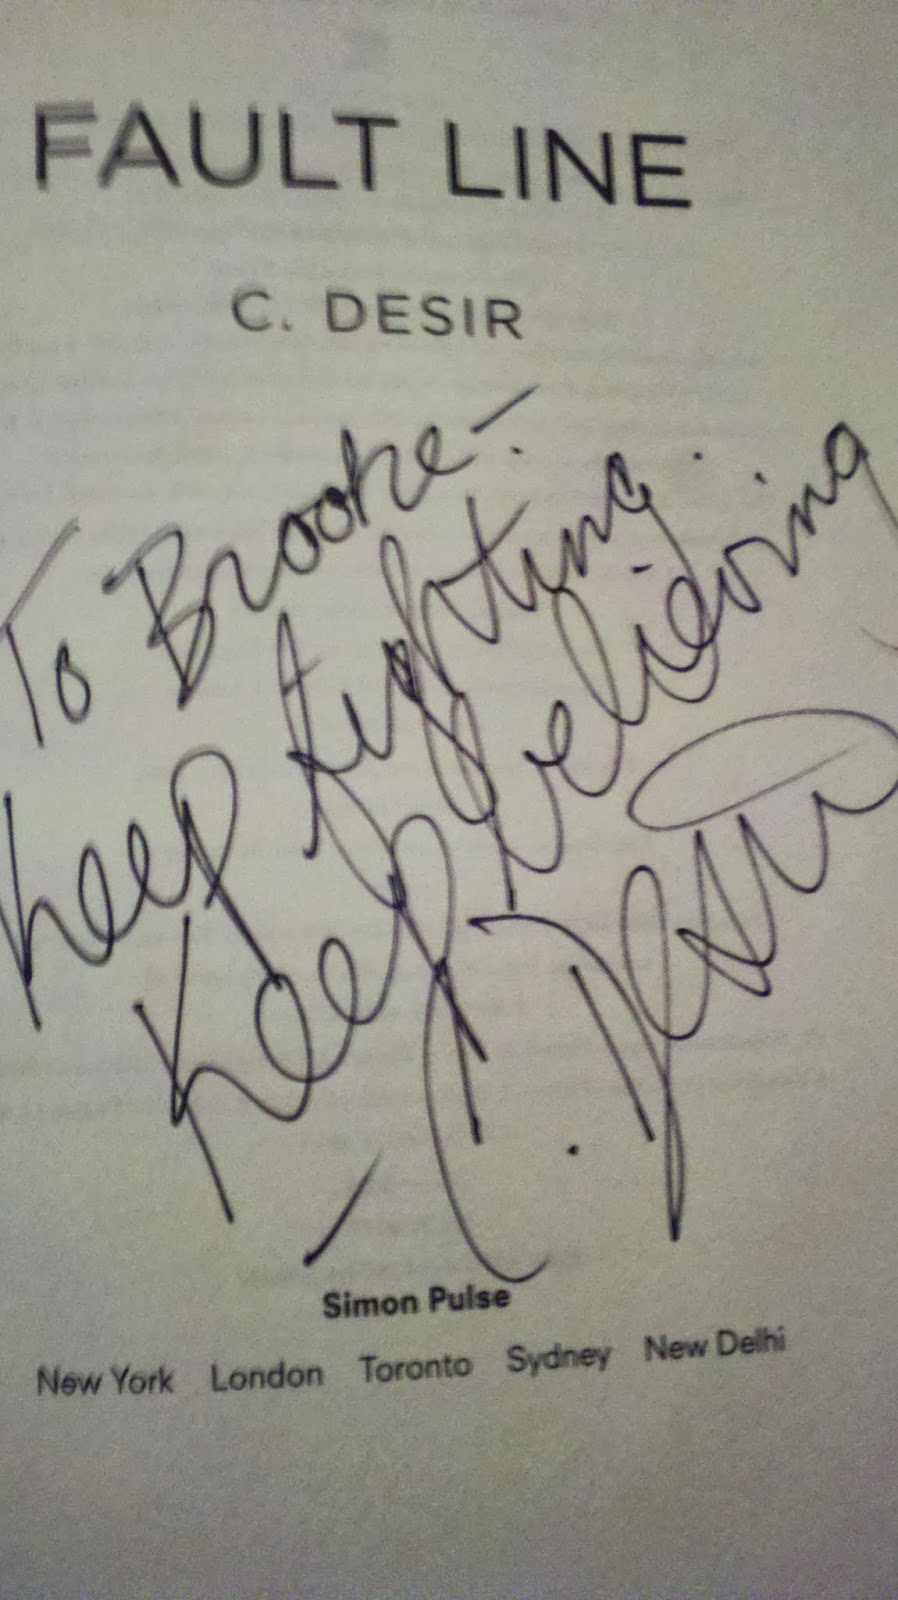 FAULT LINE
C. DESIR
To Brooke-
Keep fighting.
Keep believing
- C. Desir
Simon Pulse
New York London Toronto Sydney New Delhi